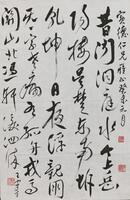 德仁兄雅正癸未元月
昔聞洞庭水今上岳
陽樓吴楚東南坼
乾坤日夜浮親朋
无一字老病有孤舟戎馬
關山北馮軒涕泗流